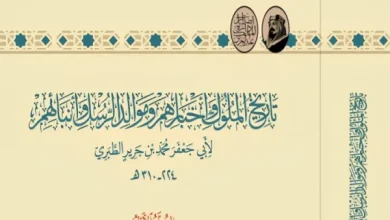 تاريخ الملوك وأخبارهم ومواليد الرسل وأنبائهم
لأبي جعفر محمد بن جرير الطبري
٢٢٤-٣١٠هـ